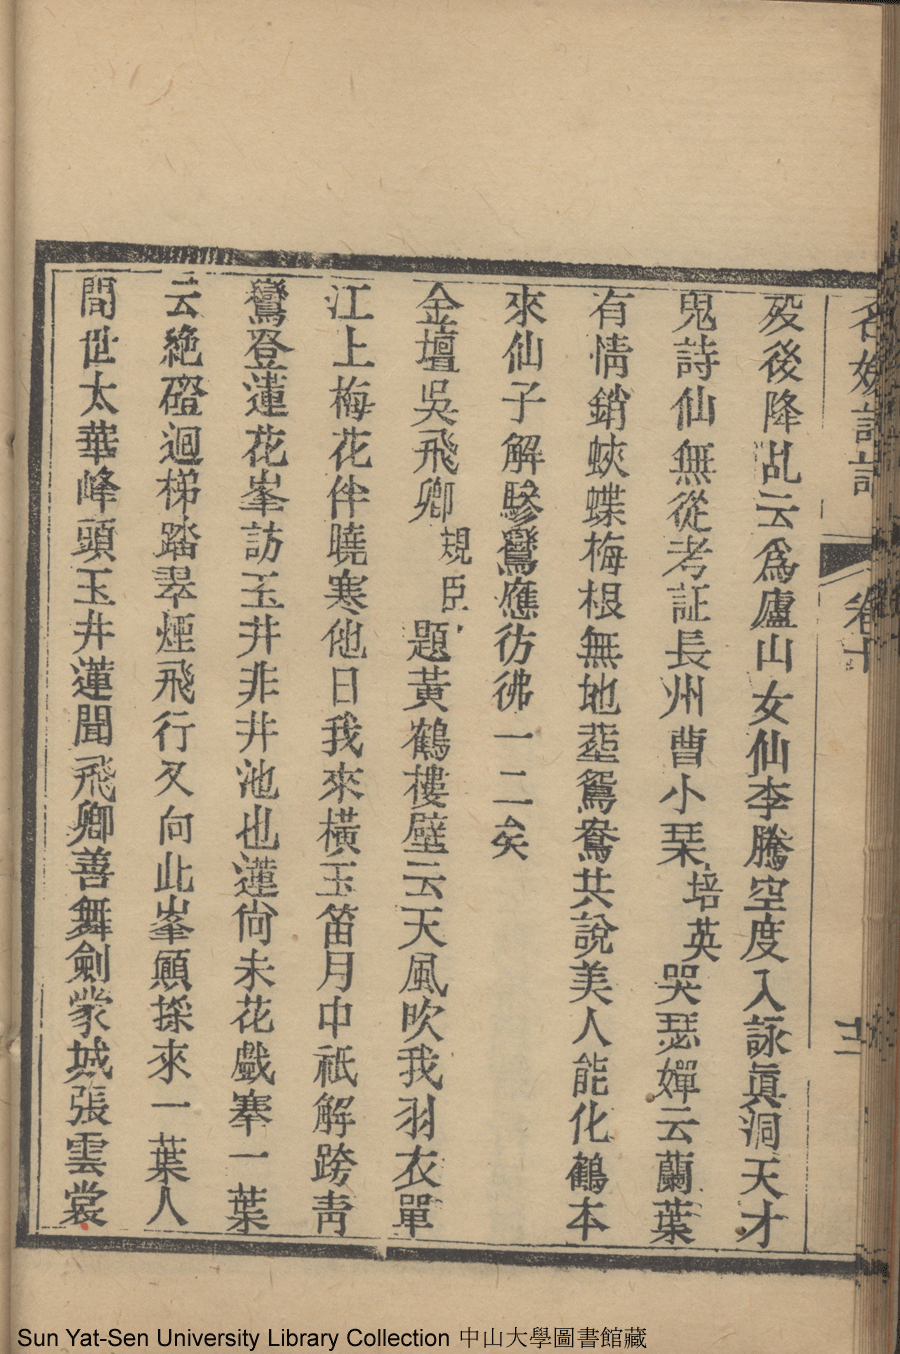 名媛詩話 卷十 十二
歿後降乩云爲廬山女仙李騰空度入詠眞洞天才
鬼詩仙無從考証長州曹小琹培英哭瑟嬋云蘭葉
有情銷蛺蝶梅根無地塟鴛鴦共說美人能化鶴本
來仙子解驂鸞應彷彿一二矣
金壇吳飛卿規臣題黃鶴樓壁云天風吹我羽衣單
江上梅花伴曉寒他日我來橫玉笛月中祇解跨靑
鸞登蓮花峯訪玉井非井池也蓮尙未花戲搴一葉
云絶磴迴梯踏翠煙飛行又向此峯顚採來一葉人
間世太華峰頭玉井蓮聞飛卿善舞劍蒙城張雲裳
Sun Yat-Sen University Library Collection 中山大學圖書館藏